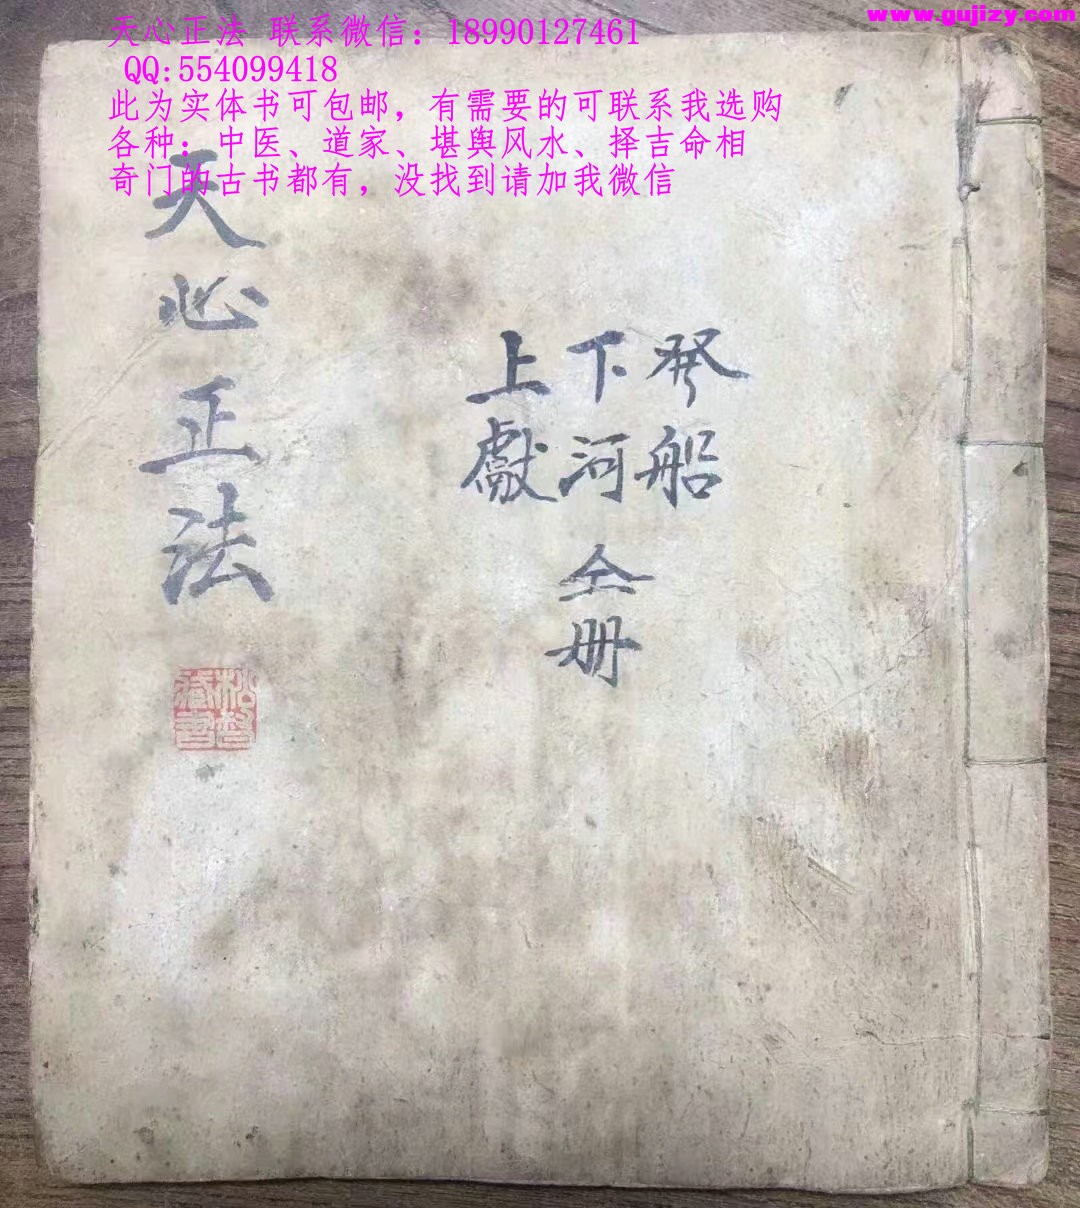 www.gujizy.com
天心正法 联系微信：18990127461
QQ:554099418
此为实体书可包邮，有需要的可联系我选购
各种：中医、道家、堪舆风水、择吉命相
奇门的古书都有，没找到请加我微信
發船
下河
上獻
仝册
天心正法
藏書